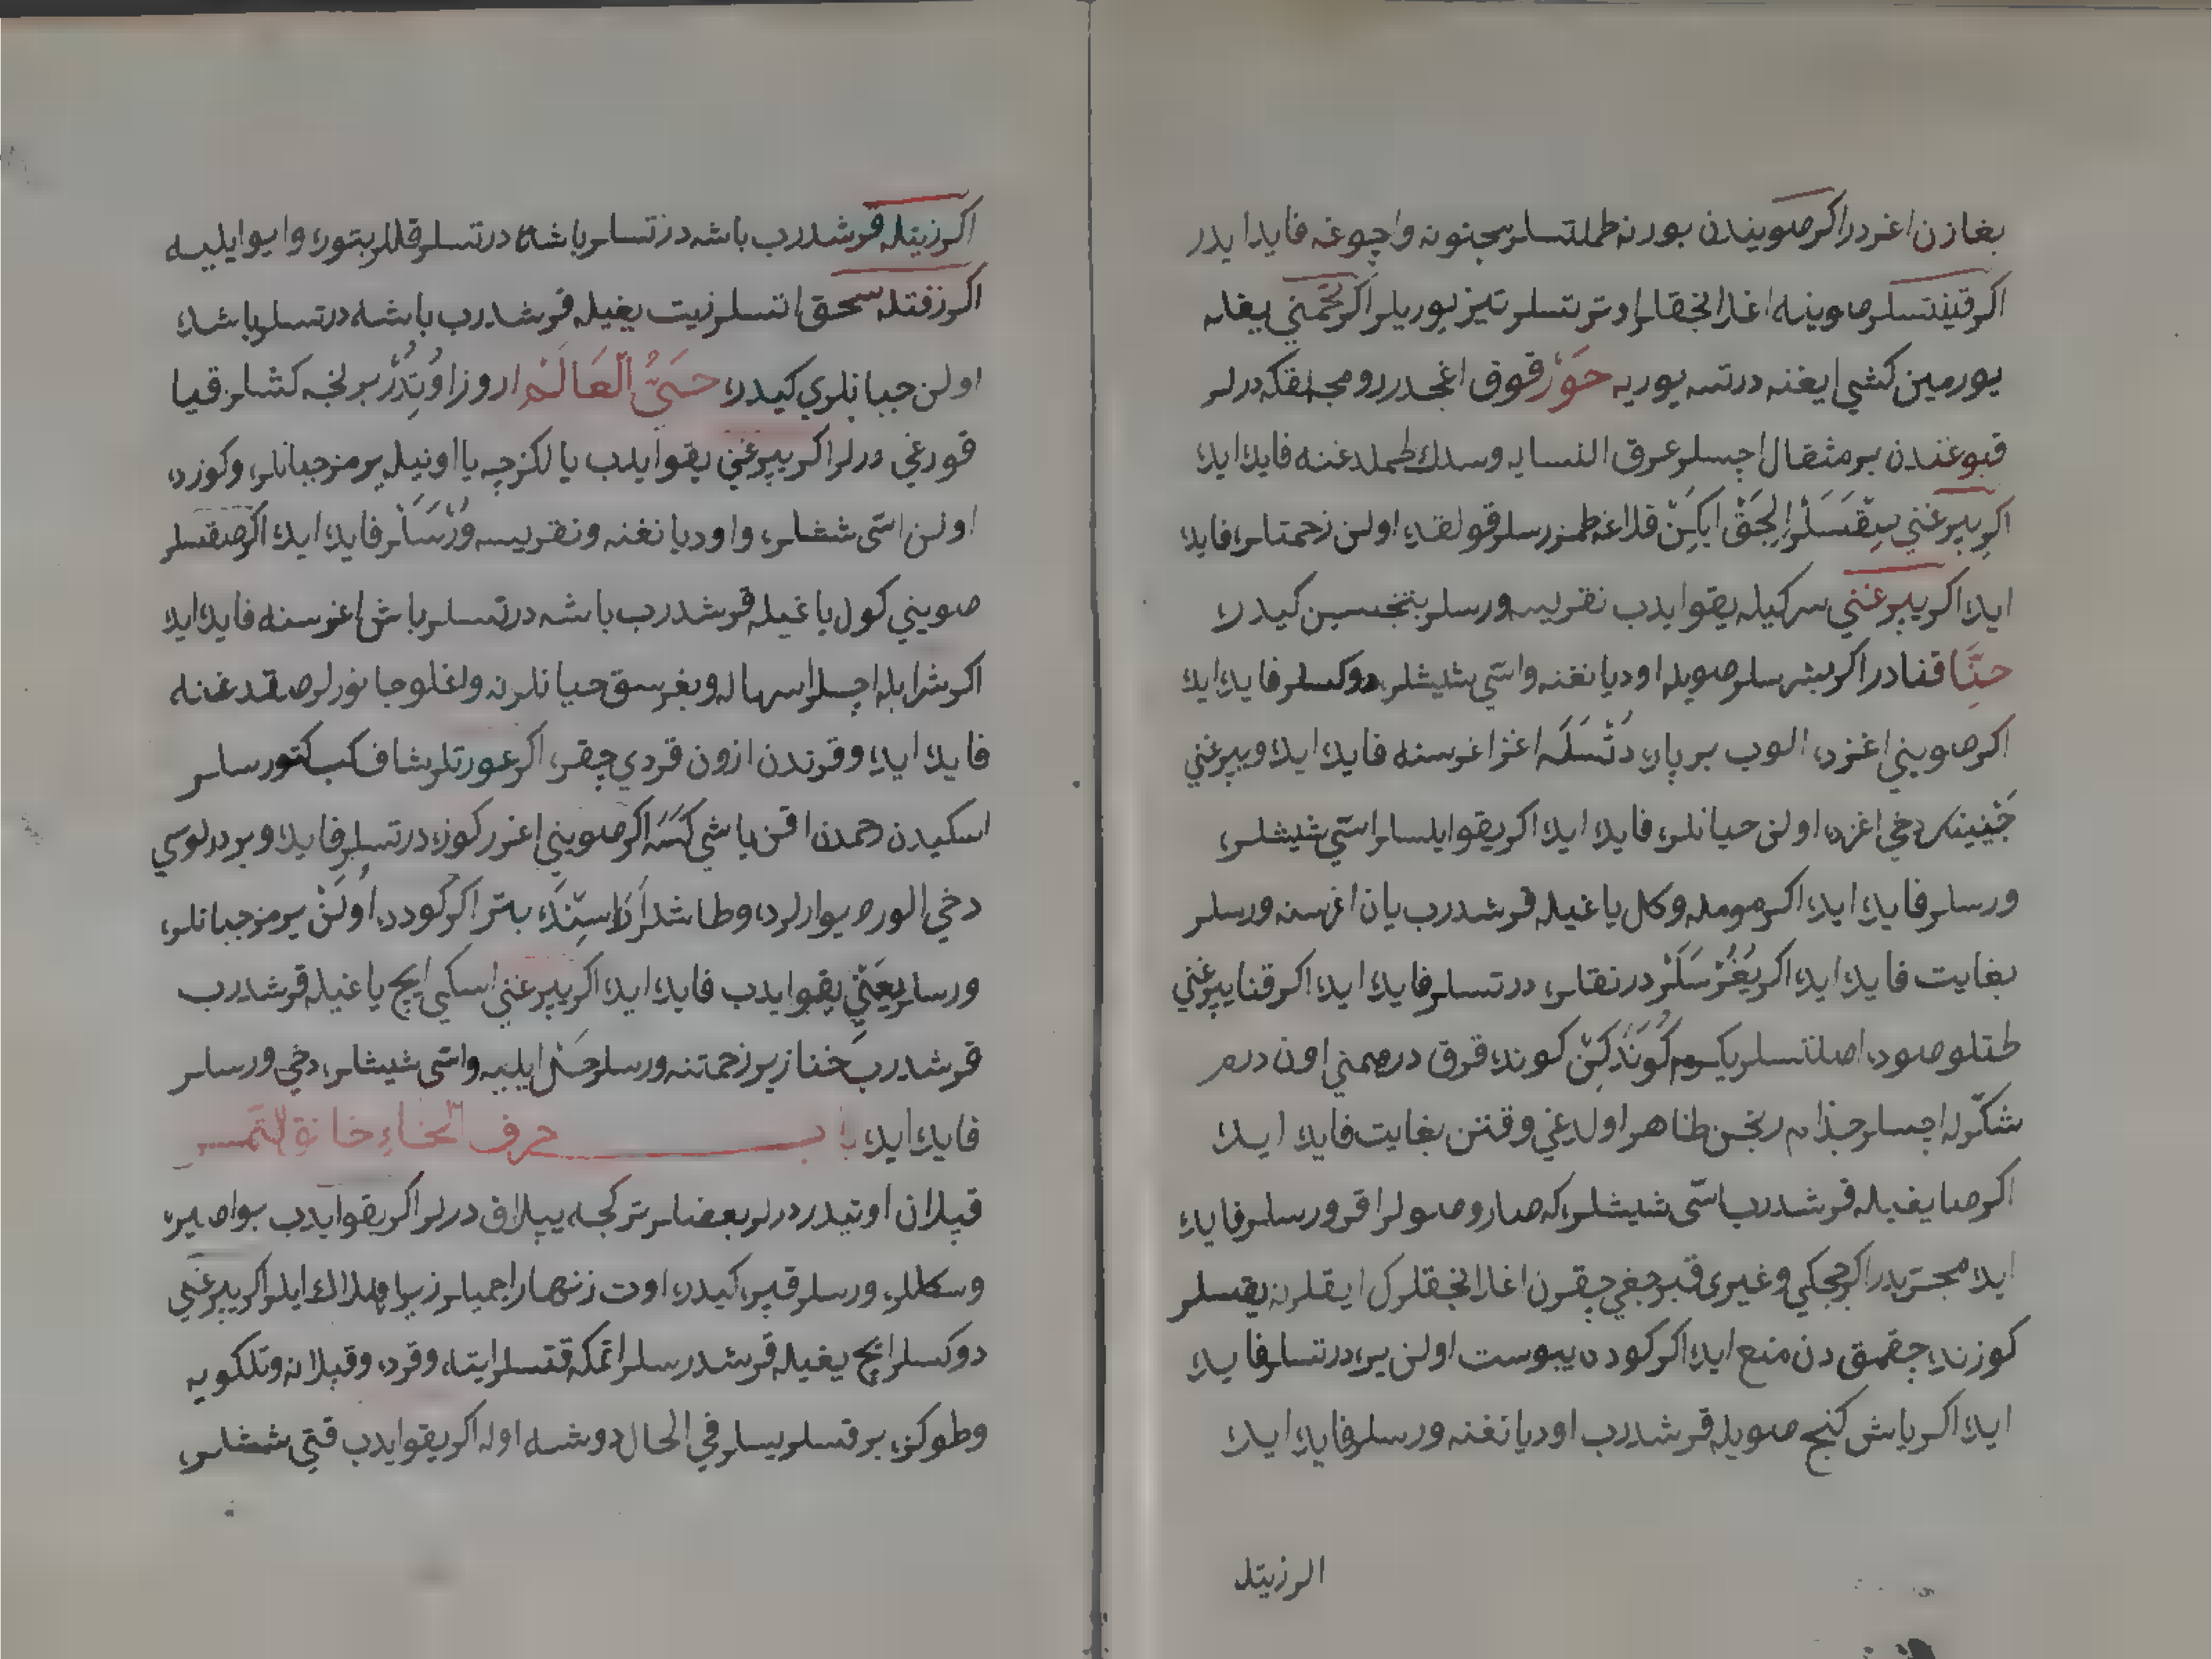 بغازن اغردر اكر صويندن بورنه طملتسلر مجنونه واچوغه فايدا ايدر
اكر قينتسلر صوينه اغلانجقلر اوترتسلر تيز يوريلر اكر تخمني يغله
يورمين كشي ايغنه درتسه يوريه حَوَرْ قوق اغجدر رومجه لفكه درلر
قبوغندن بر مثقال اچسلر عرق النسايه وسدك طملدغنه فايده ايده
اكر يپرغني سِقْسَلَرْ الِجَقْ ايكِنْ قلاغه طمزرسلر قولقده اولن زحمتلره فايده
ايده اكر يپرغني سركيله يقو ايدب نقريسه ورسلر
حنّا قنادر اكر بشرسلر صويله اوديانغنه واسّي شيشلره دوكسلر فايده ايده
اكر صويني اغزده الوب بر پاره دُتْسَلَه اغز اغرسنه فايده ايده ويپرغني
چَيْنَيَنْك دخي اغزه اولن حيانلره فايده ايده اكر يقو ايلسلر اسّي شيشلره
ورسلر فايده ايده اكر موملە وكل ياغيله قرشدرب يان اغرسنه ورسلر
بغايت فايده ايده اكر يَغُرْسَلَرْ درنقلره درتسلر فايده ايده اكر قنا يپرغني
طتلو صوده اصلتسلر يكرم كُونَدَكِنْ كونده قرق درهمني اون درم
شكّرله اچسلر جذام رنجن ظاهر اولدغي وقتن بغايت فايده ايده
اكر صايغيله قرشدرب اسّي شيشلره كه صارو صولر اقر ورسلر فايده
ايده مجرّبدر اكر چچكي وغيرى قبرجغي چقرن اغلانجقلرك ايقلرنه يقسلر
كوزنده چقمق دن منع ايده اكر كوده ده يبوست اولن يره درتسلر فايده
ايده اكر ياش كنج صويله قرشدرب اوديانغنه ورسلر فايده ايده
اكر زيتله
اكر زيتله قرشدرب باشه درتسلر باشده درتسلر قللر بتوره وايو ايليه
اكر زفتله سحق اتسلر زيت يغيله قرشدرب باشه درتسلر باشده
اولن چبانلري كيدره حَيُّ الْعَالَمْ اروز اوُتِدُرْ بر لخجه كشلر قيا
قورغي درلر اكر يپرغن يقو ايدب يالكزجه يا اونيله يرمز چبانلره وكوزده
اولن اسّى ششلره واوديانغنه ونقريسه وُرْسَلَرْ فايده ايده اكر صقسلر
صويني كول ياغيله قرشدرب باشه درتسلر باش اغرسنه فايده ايده
اكر شرابله اچسلر اسهاله وبغرسق حيانلرنه واغلو جانورلر صقدغنه
فايده ايده وقرندن ازون قردي چقره اكر عورتلر شاف كب كتورسلر
اسكيدن رحمدن اقن ياشي كسه اكر صويني اغزر كوزه درتسلر فايده وبر درلوسي
دخي الور ديوارلرده وطاشلر اَرَاسِنْدَه بتر اكر كودده اُولَنْ يرمز چبانلره
ورسلر يَعْنِي يقو ايدب فايده ايده اكر يپرغني اسكي ايچ ياغيله قرشدرب
قرشدرب خنازير زحمتنه ورسلر حل ايليه واسّى شيشلره دخي ورسلر
فايده ايده باب حرف الخاء خانق النمر
قپلان اوتيدر درلر بعضلر تركجه بيپلاق درلر اكر يقو ايدب بواصيره
وسكللره ورسلر قپره كيدره اوت زنهار اچميلر زيرا هلاك ايلر اكر يپرغني
دوكسلر ايچ يغيله قرشدرسلر اتمكه قتسلر ايته وقرده وقپلانه وتلكويه
وطوكزه برقسلر يسلر في الحال دوشه اوله اكر يقو ايدب قتي ششلره